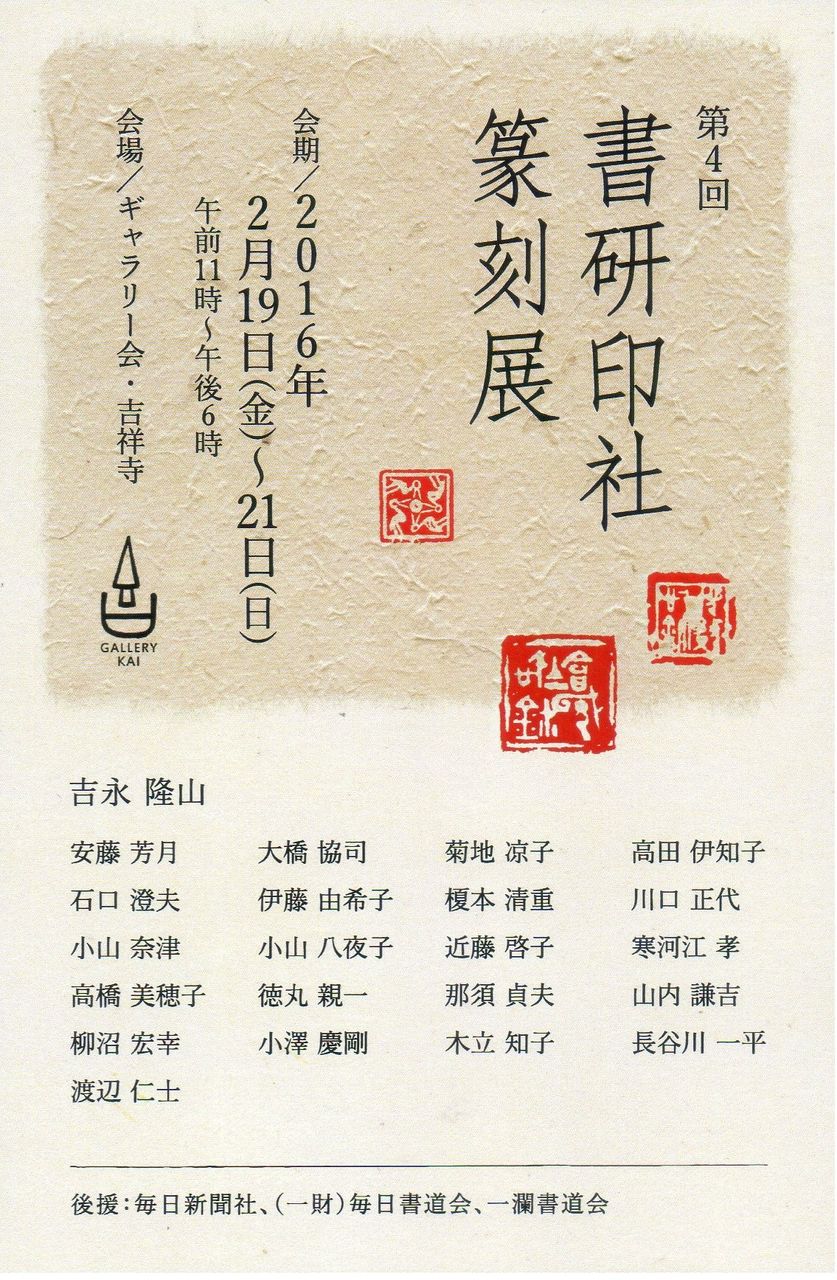 第4回
書研印社
篆刻展
会期／2016年
2月19日(金)～21日(日)
午前11時～午後6時
会場／ギャラリー会・吉祥寺
GALLERY
KAI
吉永 隆山
安藤 芳月 大橋 協司 菊地 凉子 高田 伊知子
石口 澄夫 伊藤 由希子 榎本 清重 川口 正代
小山 奈津 小山 八夜子 近藤 啓子 寒河江 孝
高橋 美穂子 徳丸 親一 那須 貞夫 山内 謙吉
柳沼 宏幸 小澤 慶剛 木立 知子 長谷川 一平
渡辺 仁士
後援：毎日新聞社、(一財)毎日書道会、一瀾書道会